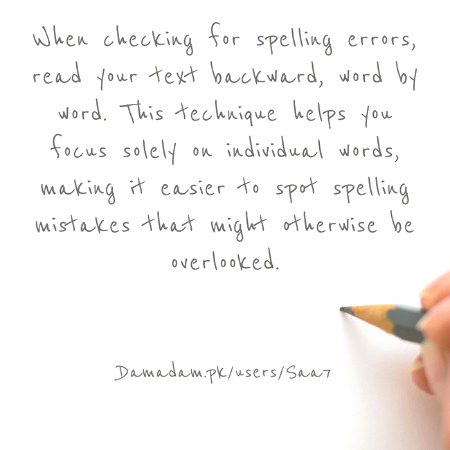 When checking for spelling errors,
read your text backward, word by
word. This technique helps you
focus solely on individual words,
making it easier to spot spelling
mistakes that might otherwise be
overlooked.
Damadam.pk/users/Saa7